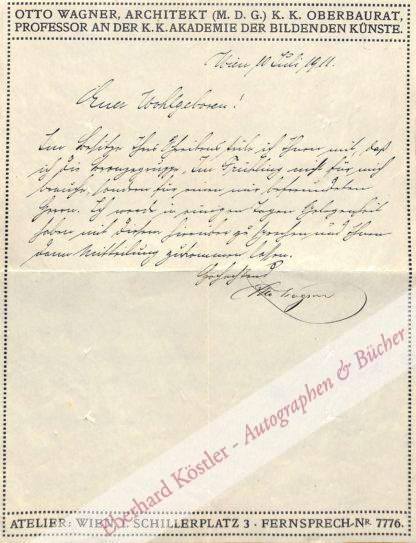 OTTO WAGNER, ARCHITEKT (M. D. G.) K. K. OBERBAURAT,
PROFESSOR AN DER K. K. AKADEMIE DER BILDENDEN KÜNSTE.
Wien 10 Juli 1911.
Euer Wohlgeboren!
Im Besitze Ihres Schreibens teile ich Ihnen mit, daß
ich die Bronzegruppe, Im Frühling nicht für mich
sondern für einen mir befreundeten
Herrn. Ich werde in einigen Tagen Gelegenheit
haben mit diesem hierüber zu sprechen und Ihnen
dann Mitteilung zukommen lassen.
Hochachtend
Otto Wagner
Eberhard Köstler - Autographen & Bücher
ATELIER: WIEN, I. SCHILLERPLATZ 3 · FERNSPRECH-NR. 7776.